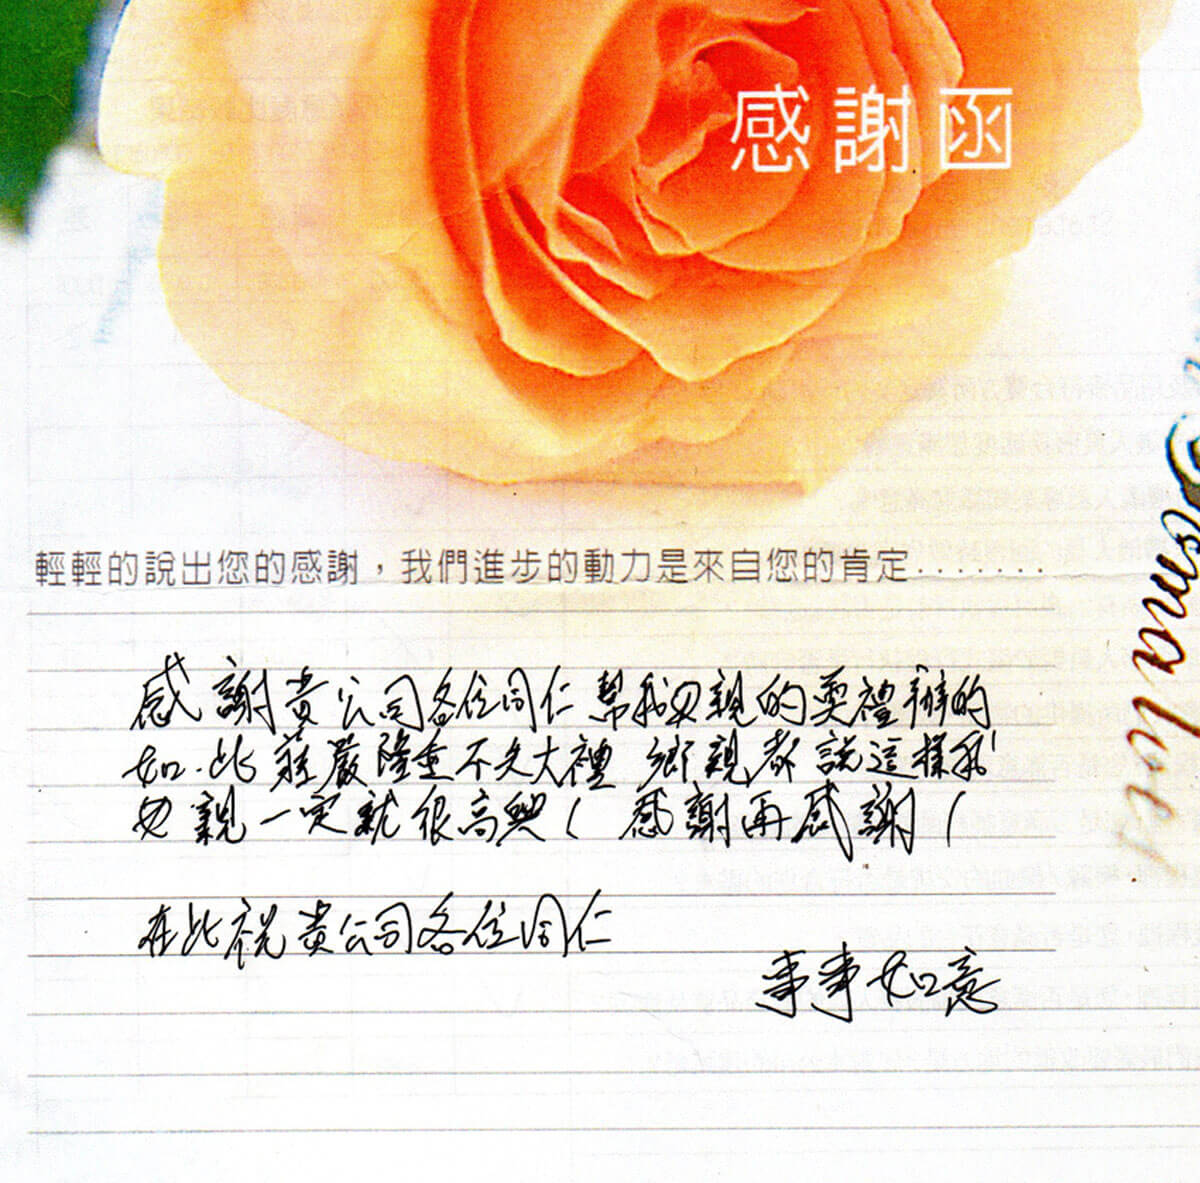 感謝函
輕輕的說出您的感謝，我們進步的動力是來自您的肯定.......
感謝貴公司各位同仁幫我母親的喪禮辦的
如此莊嚴隆重不失大禮 鄉親都說這樣我
母親一定就很高興！感謝再感謝！
在此祝貴公司各位同仁
事事如意